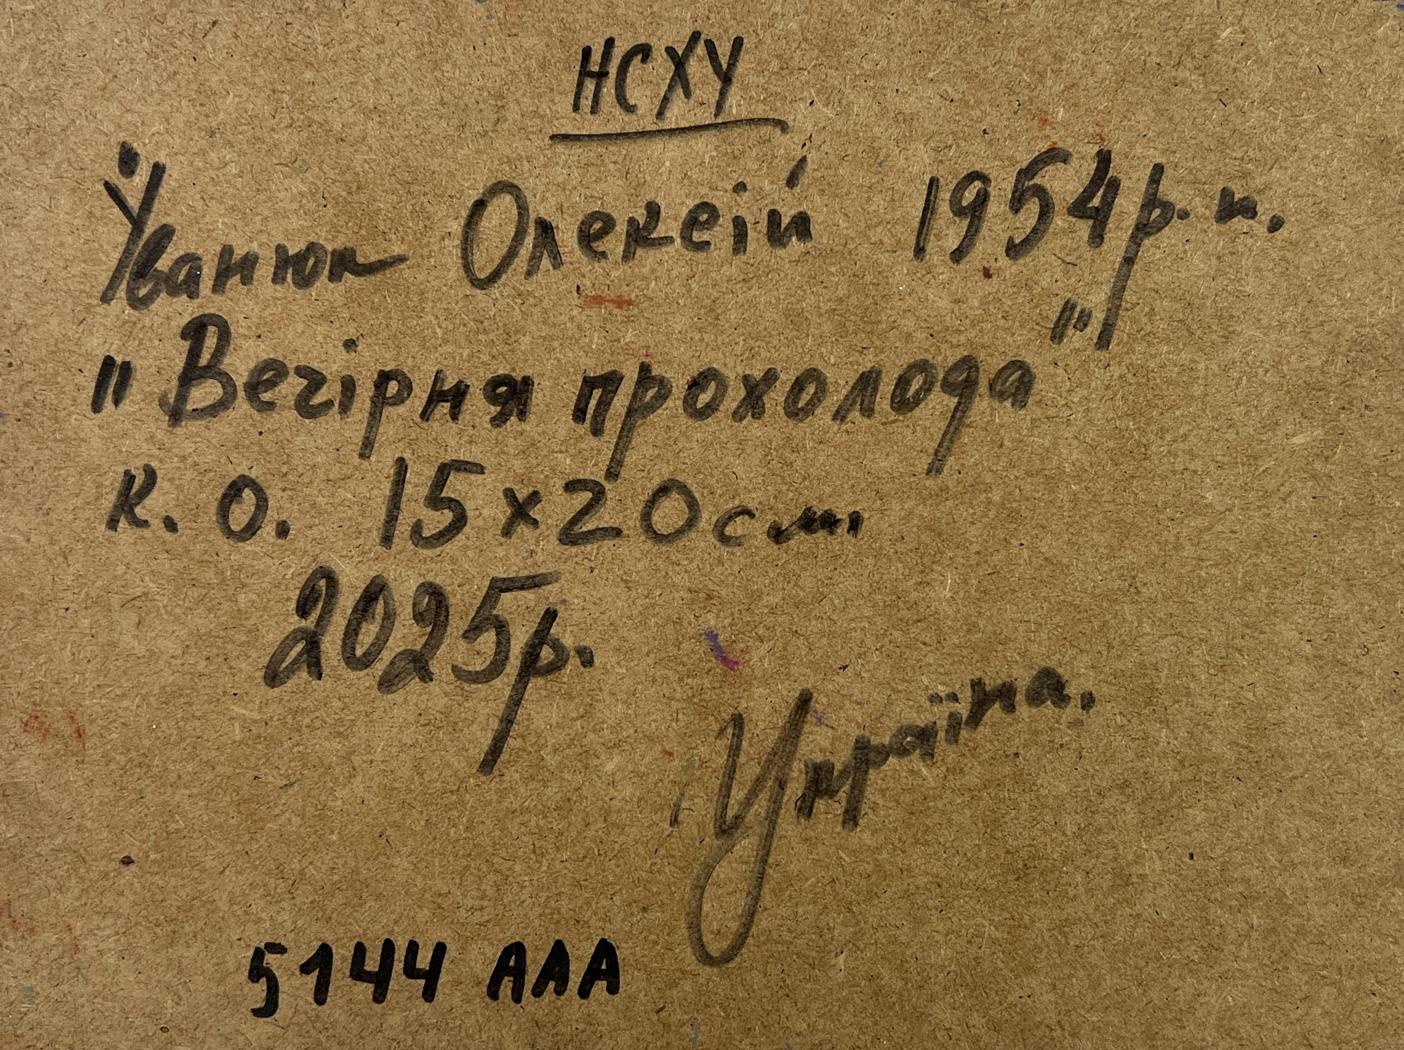 НСХУ
Іванюк Олексій 1954 р. н.
"Вечірня прохолода"
к. о. 15 х 20 см
2025 р.
Україна.
5144 ААА